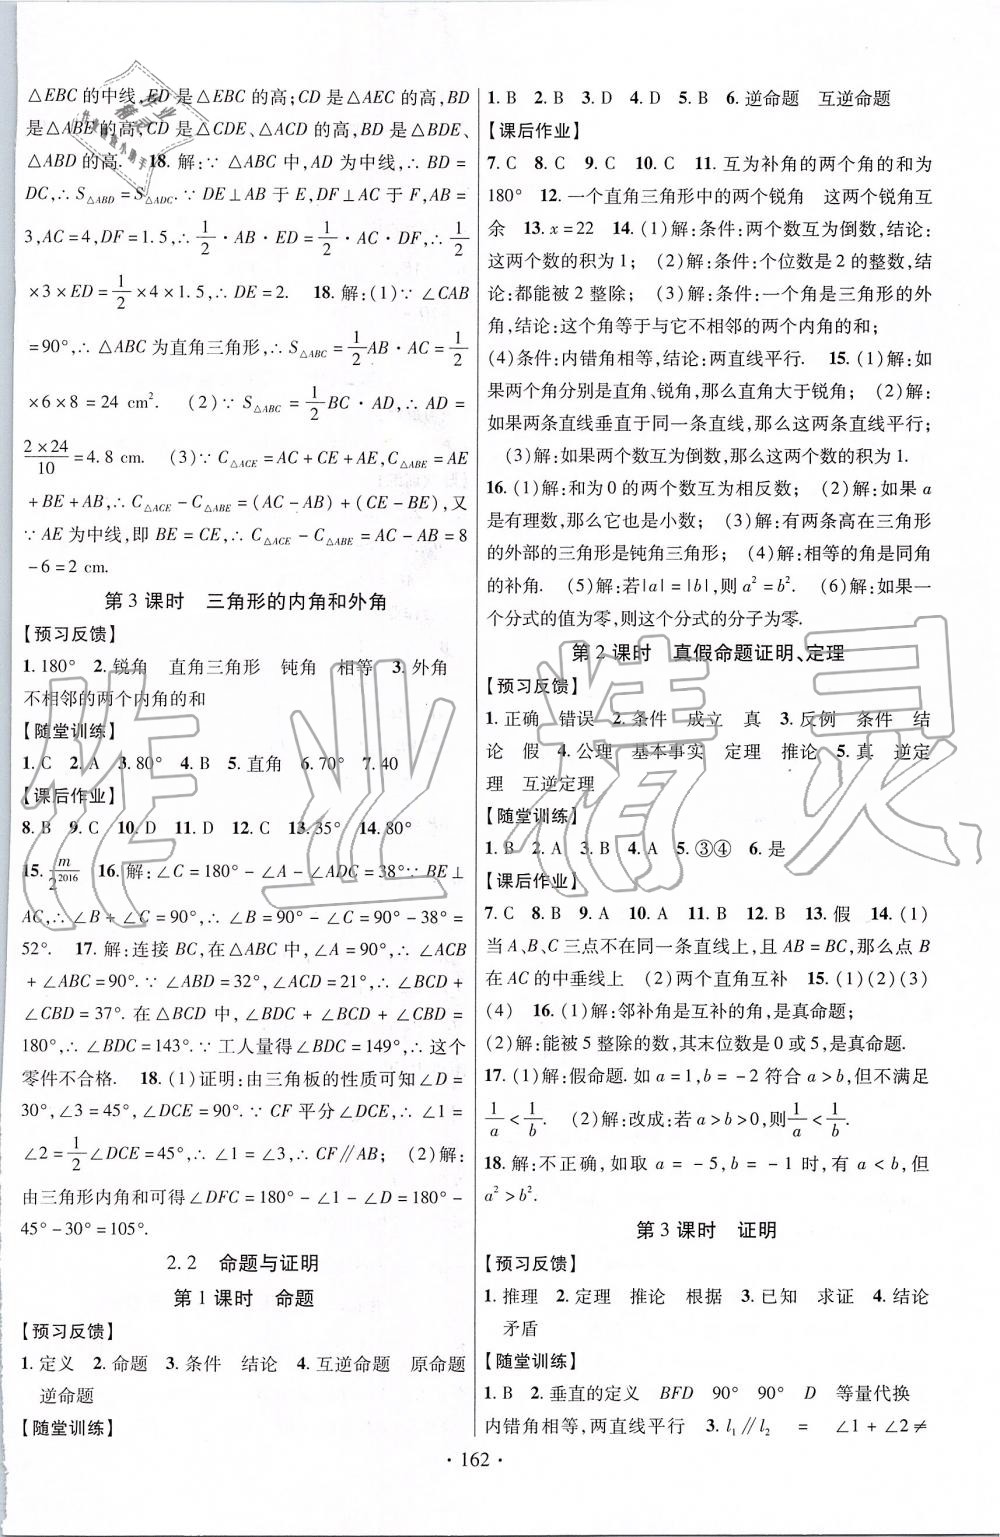 △EBC 的中线,ED 是△EBC 的高;CD 是△AEC 的高,BD
是△ABE 的高;CD 是△CDE、△ACD 的高,BD 是△BDE、
△ABD 的高. 18. 解:∵△ABC 中,AD 为中线,∴BD =
DC,∴S△ABD=S△ADC.∵ DE⊥AB 于 E,DF⊥AC 于 F,AB =
3,AC=4,DF=1.5,∴1/2·AB·ED=1/2·AC·DF,∴1/2
×3×ED=1/2×4×1.5,∴DE=2. 18. 解:(1)∵∠CAB
=90°,∴△ABC 为直角三角形,∴S△ABC=1/2AB·AC=1/2
×6×8=24 cm². (2)∵S△ABC=1/2BC·AD,∴AD=
2×24/10=4.8 cm. (3)∵C△ACE=AC+CE+AE,C△ABE=AE
+BE+AB,∴C△ACE-C△ABE=(AC-AB)+(CE-BE),又
∵AE 为中线,即 BE=CE,∴C△ACE-C△ABE=AC-AB=8
-6=2 cm.
第 3 课时 三角形的内角和外角
【预习反馈】
1. 180° 2. 锐角 直角三角形 钝角 相等 3. 外角
不相邻的两个内角的和
【随堂训练】
1. C 2. A 3. 80° 4. B 5. 直角 6. 70° 7. 40
【课后作业】
8. B 9. C 10. D 11. D 12. C 13. 35° 14. 80°
15. m/2^2016 16. 解:∠C=180°-∠A-∠ADC=38°∵BE⊥
AC,∴∠B+∠C=90°,∴∠B=90°-∠C=90°-38°=
52°. 17. 解:连接 BC,在△ABC 中,∠A=90°,∴∠ACB
+∠ABC=90°.∵∠ABD=32°,∠ACD=21°,∴∠BCD+
∠CBD=37°. 在△BCD 中,∠BDC+∠BCD+∠CBD=
180°,∴∠BDC=143°.∵工人量得∠BDC=149°,∴这个
零件不合格. 18. (1)证明:由三角板的性质可知∠D=
30°,∠3=45°,∠DCE=90°.∵CF 平分∠DCE,∴∠1=
∠2=1/2∠DCE=45°,∴∠1=∠3,∴CF∥AB; (2)解:
由三角形内角和可得∠DFC=180°-∠1-∠D=180°-
45°-30°=105°.
2.2 命题与证明
第 1 课时 命题
【预习反馈】
1. 定义 2. 命题 3. 条件 结论 4. 互逆命题 原命题
逆命题
【随堂训练】
1. B 2. B 3. D 4. D 5. B 6. 逆命题 互逆命题
【课后作业】
7. C 8. C 9. C 10. C 11. 互为补角的两个角的和为
180° 12. 一个直角三角形中的两个锐角 这两个锐角互
余 13. x=22 14. (1)解:条件:两个数互为倒数,结论:
这两个数的积为 1; (2)解:条件:个位数是 2 的整数,结
论:都能被 2 整除; (3)解:条件:一个角是三角形的外
角,结论:这个角等于与它不相邻的两个内角的和;
(4)条件:内错角相等,结论:两直线平行. 15. (1)解:如
果两个角分别是直角、锐角,那么直角大于锐角; (2)解:
如果两条直线垂直于同一条直线,那么这两条直线平行;
(3)解:如果两个数互为倒数,那么这两个数的积为 1.
16. (1)解:和为 0 的两个数互为相反数; (2)解:如果 a
是有理数,那么它也是小数; (3)解:有两条高在三角形
的外部的三角形是钝角三角形; (4)解:相等的角是同角
的补角. (5)解:若|a|=|b|,则 a²=b². (6)解:如果一
个分式的值为零,则这个分式的分子为零.
第 2 课时 真假命题证明、定理
【预习反馈】
1. 正确 错误 2. 条件 成立 真 3. 反例 条件 结
论 假 4. 公理 基本事实 定理 推论 5. 真 逆定
理 互逆定理
【随堂训练】
1. B 2. A 3. B 4. A 5. ③④ 6. 是
【课后作业】
7. C 8. B 9. A 10. A 11. B 12. B 13. 假 14. (1)
当 A、B、C 三点不在同一条直线上,且 AB=BC,那么点 B
在 AC 的中垂线上 (2)两个直角互补 15. (1)(2)(3)
(4) 16. (1)解:邻补角是互补的角,是真命题;
(2)解:能被 5 整除的数,其末位数是 0 或 5,是真命题.
17. (1)解:假命题. 如 a=1,b=-2 符合 a>b,但不满足
1/a<1/b. (2)解:改成:若 a>b>0,则1/a<1/b.
18. 解:不正确,如取 a=-5,b=-1 时,有 a<b,但
a²>b².
第 3 课时 证明
【预习反馈】
1. 推理 2. 定理 推论 根据 3. 已知 求证 4. 结论
矛盾
【随堂训练】
1. B 2. 垂直的定义 BFD 90° 90° D 等量代换
内错角相等,两直线平行 3. l₁∥l₂ = ∠1+∠2≠
·162·
作业精灵